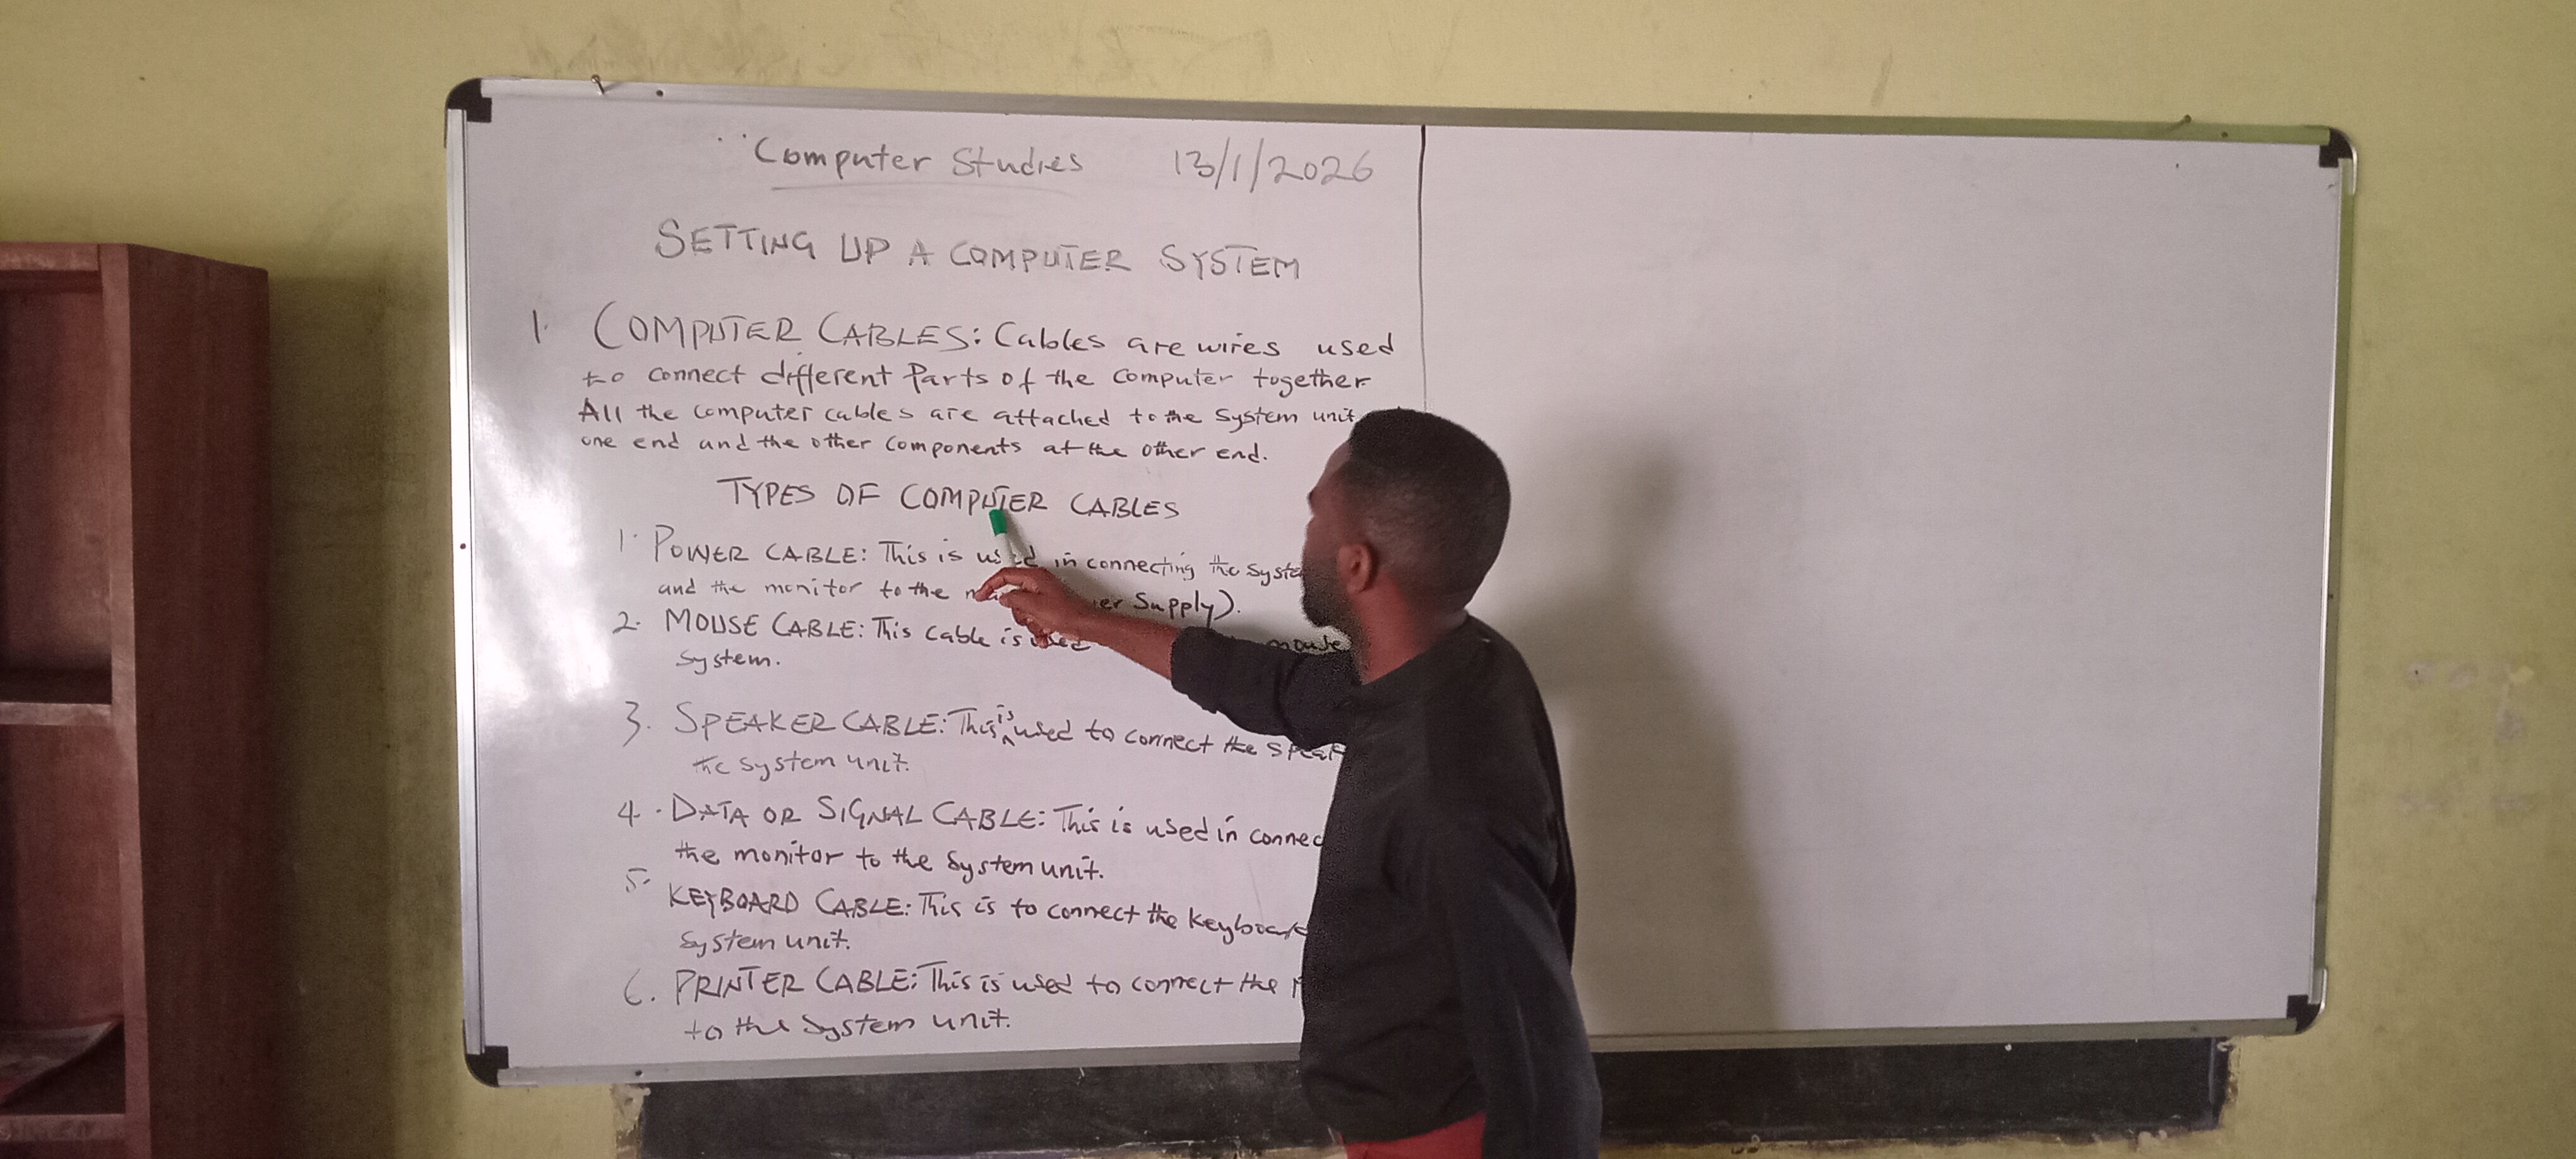 Computer Studies 13/1/2026
SETTING UP A COMPUTER SYSTEM
1. COMPUTER CABLES: Cables are wires used
to connect different Parts of the computer together
All the computer cables are attached to the system unit
one end and the other components at the other end.
TYPES OF COMPUTER CABLES
1. POWER CABLE: This is used in connecting the
and the monitor to the Supply).
2. MOUSE CABLE: This cable is used mouse
system.
3. SPEAKER CABLE: This is used to connect the
the system unit.
4. DATA OR SIGNAL CABLE: This is used in
the monitor to the system unit.
5. KEYBOARD CABLE: This is to connect the
system unit.
6. PRINTER CABLE: This is used to connect the
to the system unit.